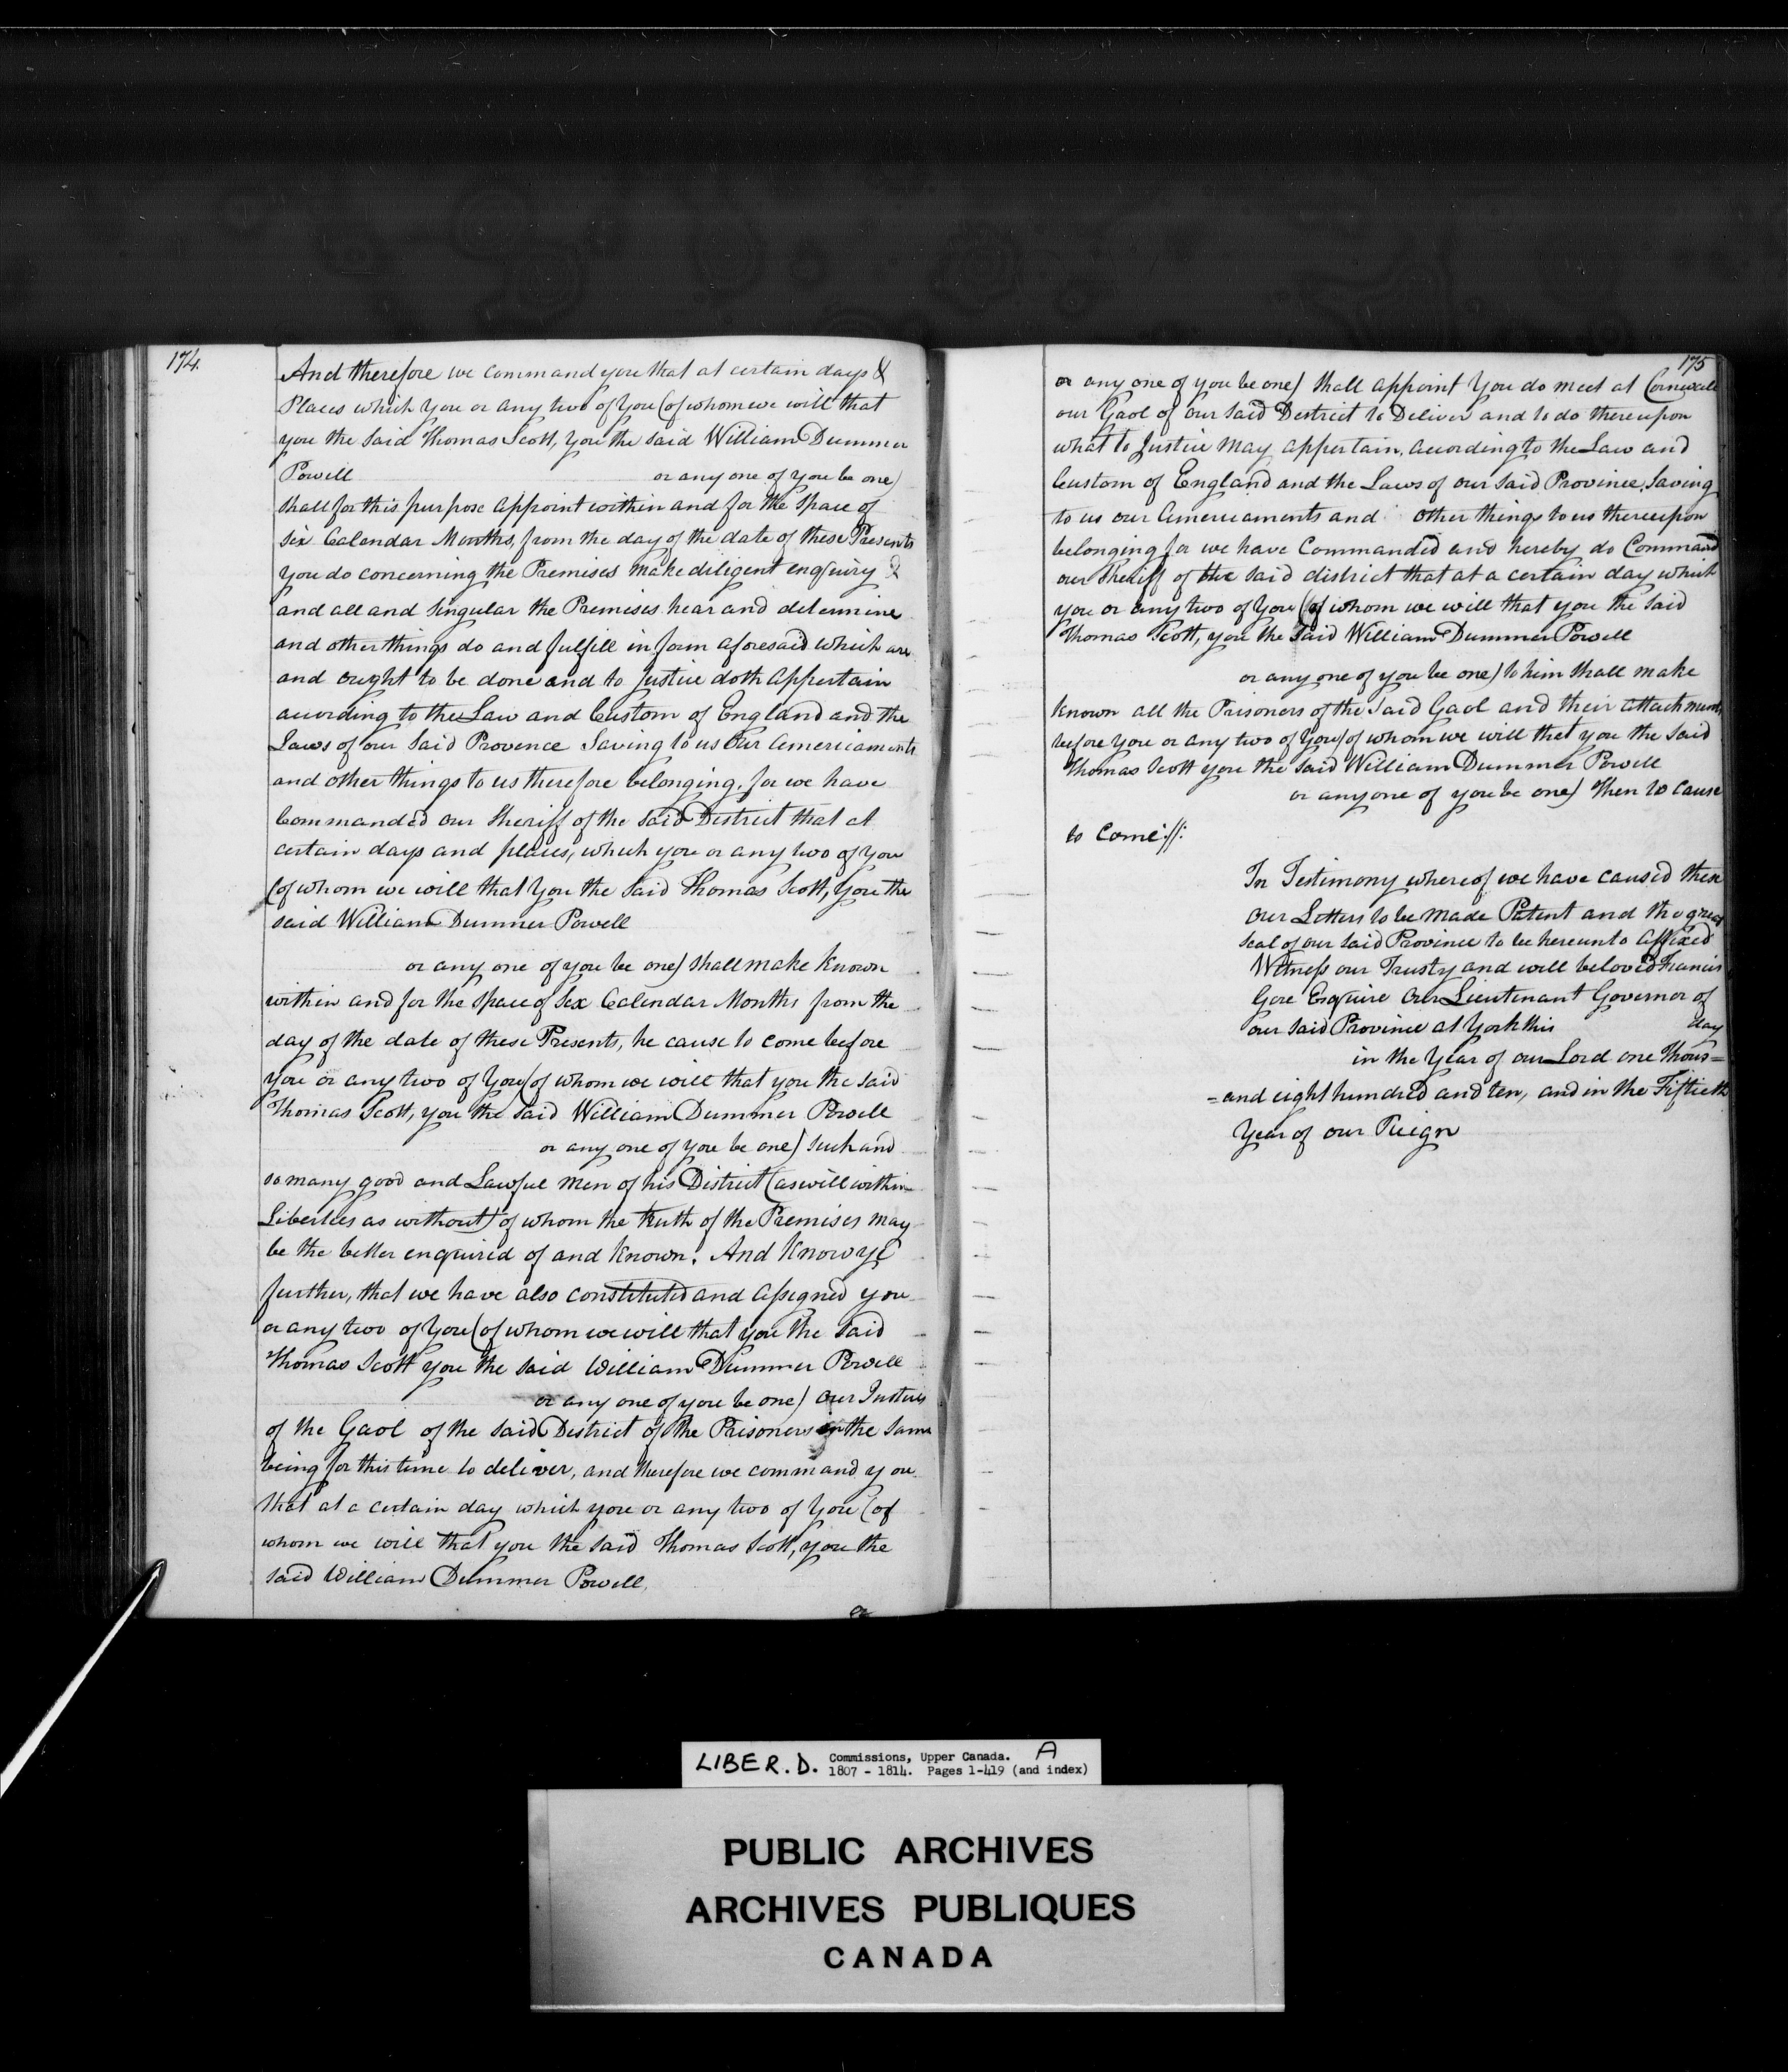 174.
And therefore we command you that at certain days &
Places which You or any two of You (of whom we will that
you the said Thomas Scott, you the said William Dummer
Powell or any one of you be one)
shall for this purpose appoint within and for the space of
six Calendar Months, from the day of the date of these Presents
you do concerning the Premises make diligent enquiry &
and all and singular the Premises hear and determine
and other things do and fulfill in form aforesaid which are
and ought to be done and to Justice doth appertain
according to the Law and Custom of England and the
Laws of our said Provence Saving to us our amerciaments
and other things to us therefore belonging, for we have
Commanded our Sheriff of the said District that at
certain days and places, which you or any two of you
(of whom we will that You the said Thomas Scott, You the
said William Dummer Powell
or any one of you be one) shall make known
within and for the space of Six Calendar Months from the
day of the date of these Presents, he cause to come before
you or any two of You (of whom we will that you the said
Thomas Scott, you the said William Dummer Powell
or any one of you be one) such and
so many good and Lawful Men of his District (as well within
Liberties as without) of whom the truth of the Premises may
be the better enquired of and known. And Know ye
further, that we have also constituted and assigned you
or any two of You (of whom we will that you the said
Thomas Scott you the said William Dummer Powell
or any one of you be one) our Justices
of the Gaol of the said District of the Prisoners in the same
being for this time to deliver, and therefore we command you
that at a certain day which you or any two of You (of
whom we will that you the said Thomas Scott, you the
said William Dummer Powell
or
175
or any one of you be one) shall appoint You do meet at Cornwall
our Gaol of our said District to Deliver and to do thereupon
what to Justice may appertain, according to the Law and
Custom of England and the Laws of our said Province, Saving
to us our Amerciaments and other things to us thereupon
belonging for we have Commanded and hereby do Command
our Sheriff of the said district that at a certain day which
you or any two of You (of whom we will that you the said
Thomas Scott, you the said William Dummer Powell
or any one of you be one) to him shall make
known all the Prisoners of the said Gaol and their attachments
before You or any two of You (of whom we will that you the said
Thomas Scott you the said William Dummer Powell
or any one of you be one) then to cause
to come://:
In Testimony whereof we have caused these
our Letters to be made Patent and the great
seal of our said Province to be hereunto affixed
Witness our Trusty and well beloved Francis
Gore Esquire Our Lieutenant Governor of
our said Province at York this day
in the Year of our Lord one Thous=
=and eight hundred and ten, and in the Fiftieth
Year of our Reign
LIBER. D. Commissions, Upper Canada. A
1807 - 1814. Pages 1-419 (and index)
PUBLIC ARCHIVES
ARCHIVES PUBLIQUES
CANADA